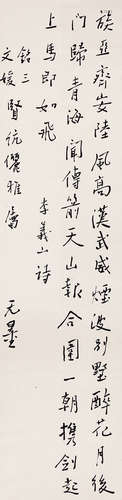 族亞齊安陸風高漢武威煙波別墅醉花月後
門歸青海聞傳箭天山報合圍一朝攜劍起
上馬即如飛 李義山詩
銘三
文媛 賢伉儷雅屬
无量